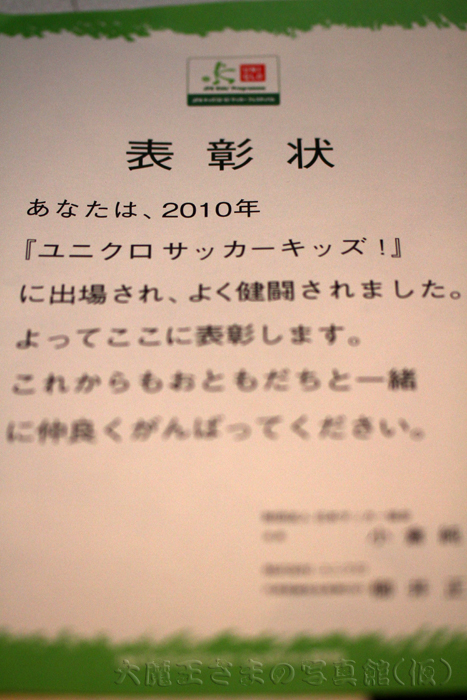 表彰状
あなたは、2010年
『ユニクロ サッカーキッズ!』
に出場され、よく健闘されました。
よってここに表彰します。
これからもおともだちと一緒
に仲良くがんばってください。
大魔王さまの写真館(仮)